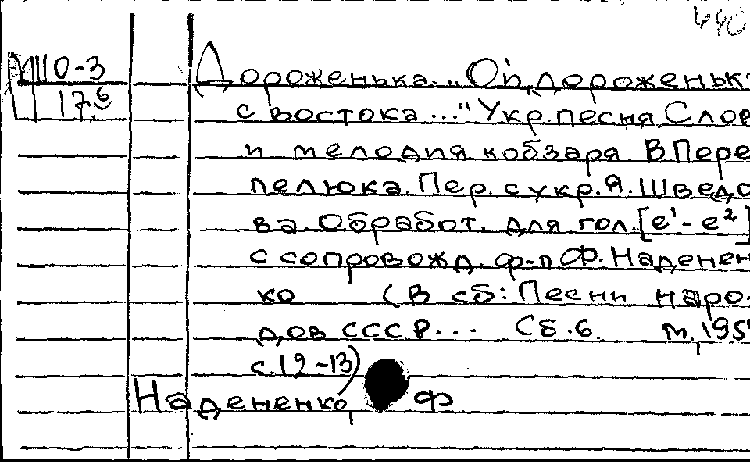 640
М110-3
17.6
Дороженька. „Ой, дороженьк
с востока..." Укр. песня. Слов
и мелодия кобзаря В. Пере
пелюка. Пер. с укр. Я. Шведо
ва. Обработ. для гол. [e¹-e²]
с сопровожд. ф-п Ф. Наденен
ко (В сб: Песни наро
дов СССР... Сб. 6. М, 195
с. 12-13)
Надененко, Ф